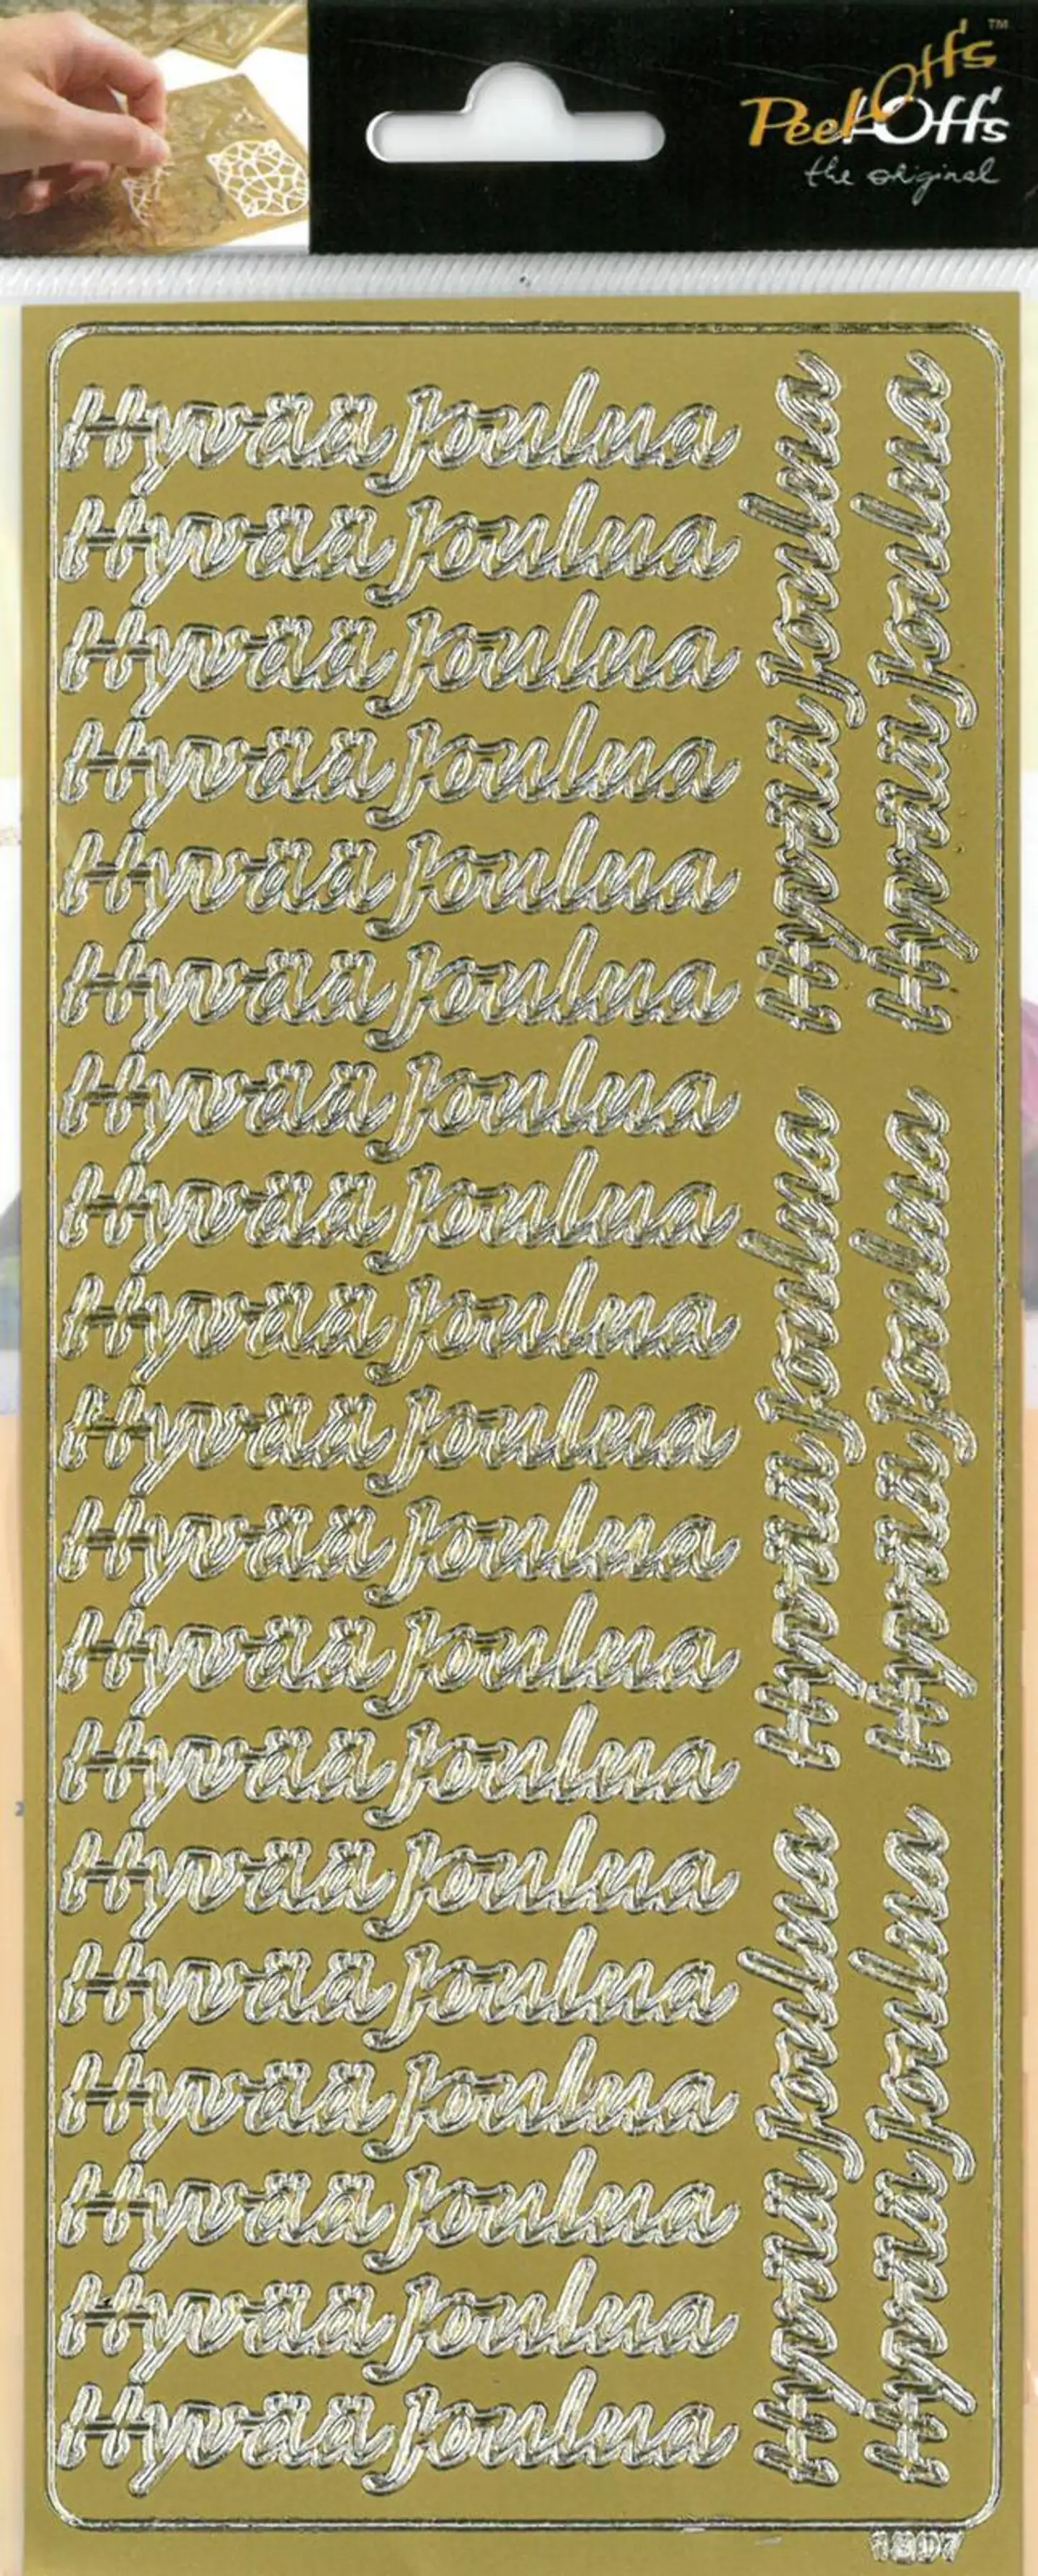 Off's™
Peel-Off's
the original
Hyvää joulua
Hyvää joulua
Hyvää joulua
Hyvää joulua
Hyvää joulua
Hyvää joulua
Hyvää joulua
Hyvää joulua
Hyvää joulua
Hyvää joulua
Hyvää joulua
Hyvää joulua
Hyvää joulua
Hyvää joulua
Hyvää joulua
Hyvää joulua
Hyvää joulua
Hyvää joulua
Hyvää joulua
Hyvää joulua
Hyvää joulua
Hyvää joulua
Hyvää joulua
Hyvää joulua
Hyvää joulua